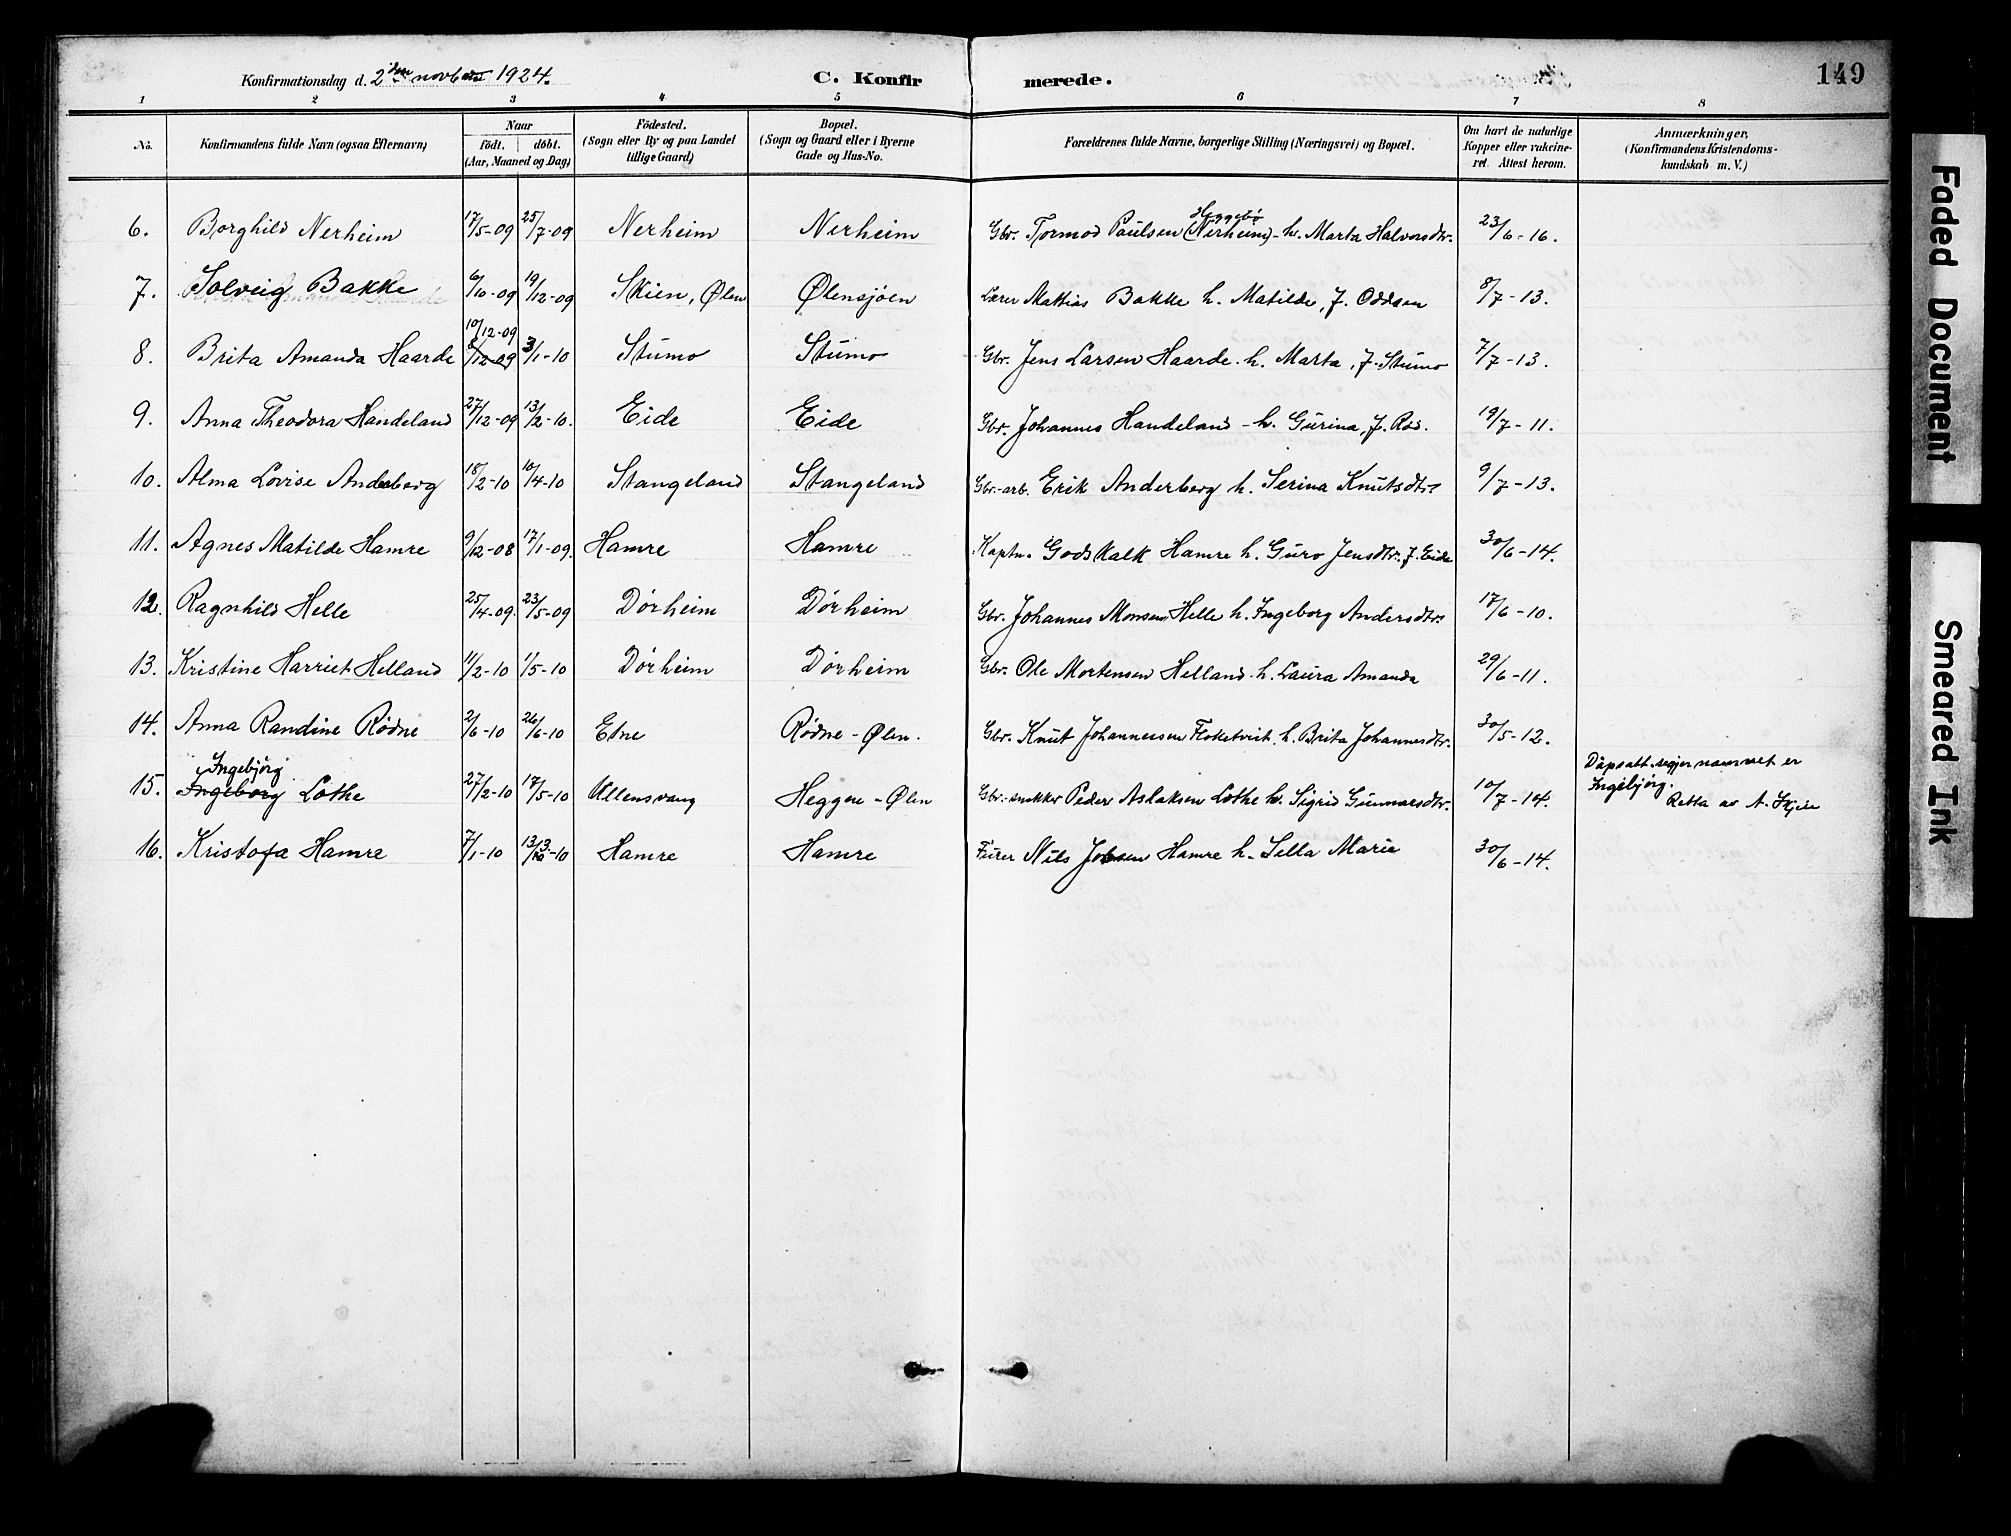 Konfirmationsdag d. 2den novber 1924.
C. Konfirmerede.
149
1 2 3 4 5 6 7 8
No.
Konfirmandens fulde Navn (ogsaa Efternavn)
Naar
födt. döbt.
(Aar, Maaned og Dag)
Födested.
(Sogn eller By og paa Landet
tillige Gaard)
Bopæl.
(Sogn og Gaard eller i Byerne
Gade og Hus-No.
Forældrenes fulde Navne, borgerlige Stilling (Næringsvei) og Bopæl.
Om havt de naturlige
Kopper eller vakcine-
ret. Attest herom.
Anmærkninger,
(Konfirmandens Kristendoms-
kundskab m. V.)
6. Borghild Nerheim 17/5-09 25/7-09 Nerheim Nerheim Gbr. Tormod Paulsen (Nerheim) Heggebø - h. Marta Halvorsdtr. 23/6-16.
7. Solveig Bakke 6/10-09 19/12-09 Skien, Ølen Ølensjøen Lærer Mattias Bakke h. Matilde, f. Oddsen 8/7-13.
10/12-09
8. Brita Amanda Haarde /12-09 3/1-10 Stumo Stumo Gbr. Jens Larsen Haarde h. Marta, f. Stumo 7/7-13.
9. Anna Theodora Handeland 27/12-09 13/2-10. Eide Eide Gbr. Johannes Handeland - h. Gurina, f. Røs. 19/7-11.
10. Alma Lovise Anderberg 18/2-10 10/4-10 Stangeland Stangeland Gbr.-arb. Erik Anderberg h. Serina Knutsdtr. 9/7-13.
11. Agnes Matilde Hamre 9/12-08 17/1-09. Hamre Hamre Kaptn. Godskalk Hamre h. Guro Jensdtr. f. Eide 30/6-14.
12. Ragnhild Helle 25/4-09. 23/5-09 Dørheim Dørheim Gbr. Johannes Monsen Helle h. Ingeborg Andersdtr. 17/6-10.
13. Kristine Harriet Helland 11/2-10 1/5-10 Dørheim Dørheim Gbr. Ole Mortensen Helland h. Laura Amanda 29/6-11.
14. Anna Randine Rødne 2/6-10 26/6-10 Etne Rødne - Ølen. Gbr. Knut Johannessen Floketveit h. Brita Johannesdtr. 30/5-12.
Ingebjörg
15. Ingeborg Lothe 27/2-10 17/5-10 Ullensvang Heggen - Ølen Gbr.-snekker Peder Aslaksen Lothe h. Sigrid Gunnarsdtr. 10/7-14.
Dåpsatt. segjer namnet er
Ingebjörg.
Retta av A. Skjeie
16. Kristofa Hamre 7/1-10 13/3-10 Hamre Hamre Furer Nils Jobsen Hamre h. Sella Marie 30/6-14.
Faded Document
Smeared Ink